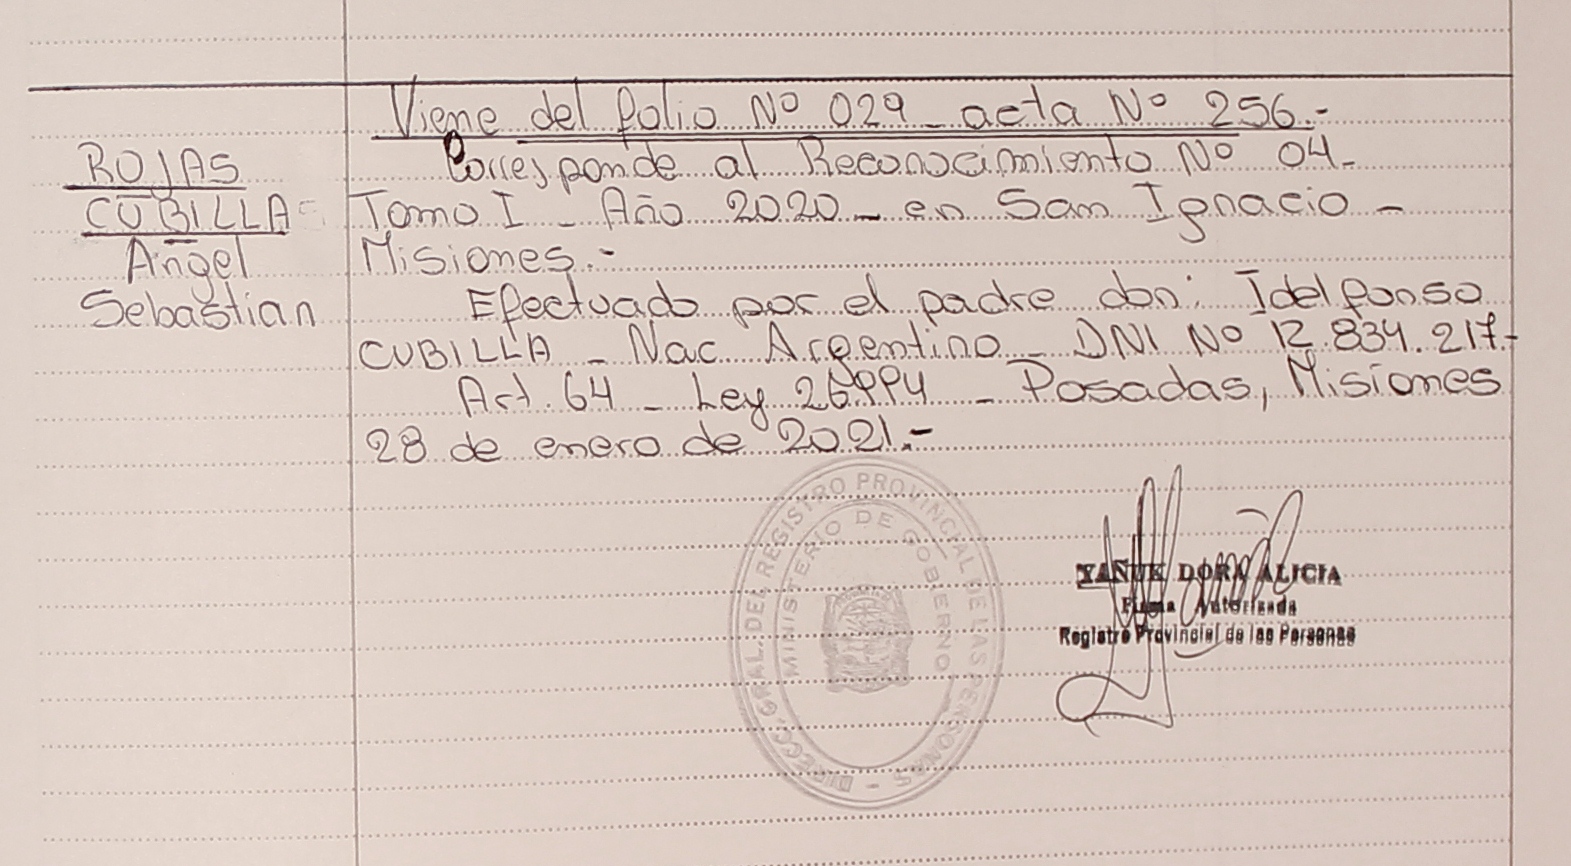 Viene del folio Nº 029 _ acta Nº 256.-
ROJAS
Corresponde al Reconocimiento Nº 04-
CUBILLA
Tomo I _ Año 2020 _ en San Ignacio -
Angel
Misiones.-
Sebastian
Efectuado por el padre don: Idelfonso
CUBILLA _ Nac Argentino _ DNI Nº 12.834.217.-
Art. 64 _ Ley 26994 _ Posadas, Misiones
28 de enero de 2021.-
DIRECC. GRAL. DEL REGISTRO PROVINCIAL DE LAS PERSONAS -
MINISTERIO DE GOBIERNO
YAÑUK DORA ALICIA
Firma Autorizada
Registro Provincial de las Personas